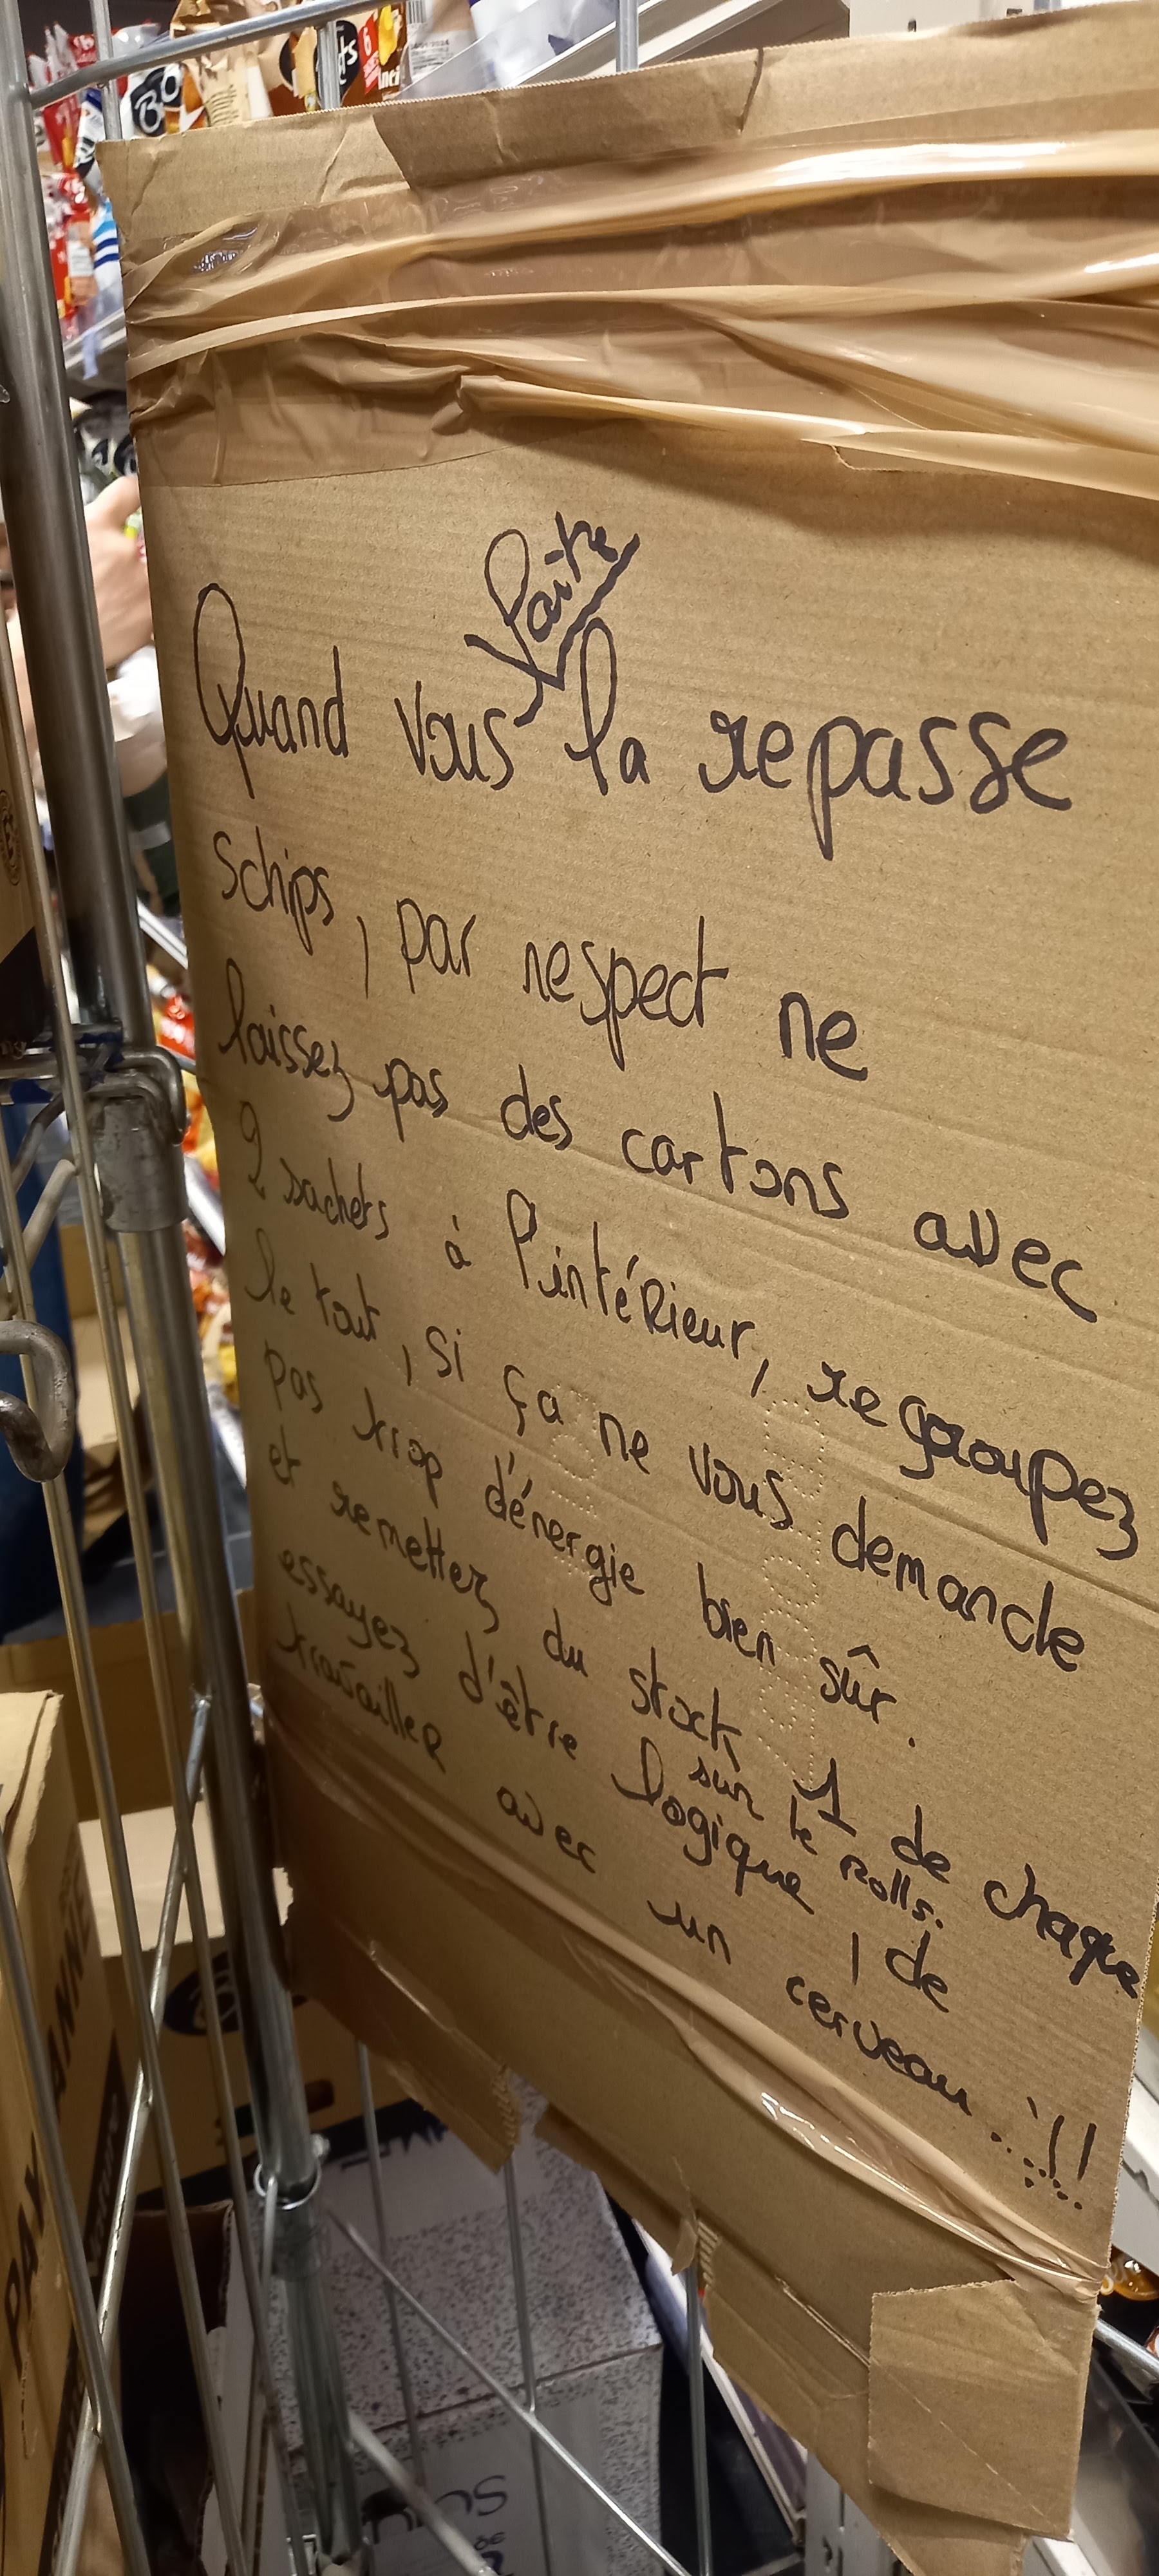 faite
Quand vous la repasse
schips, par respect ne
laissez pas des cartons avec
2 sachets à l'intérieur, regroupez
le tout, si ça ne vous demande
pas trop d'énergie bien sûr.
et remettez du stock 1 de chaque
sur le rolls.
essayez d'être logique, de
travailler avec un cerveau...!!!